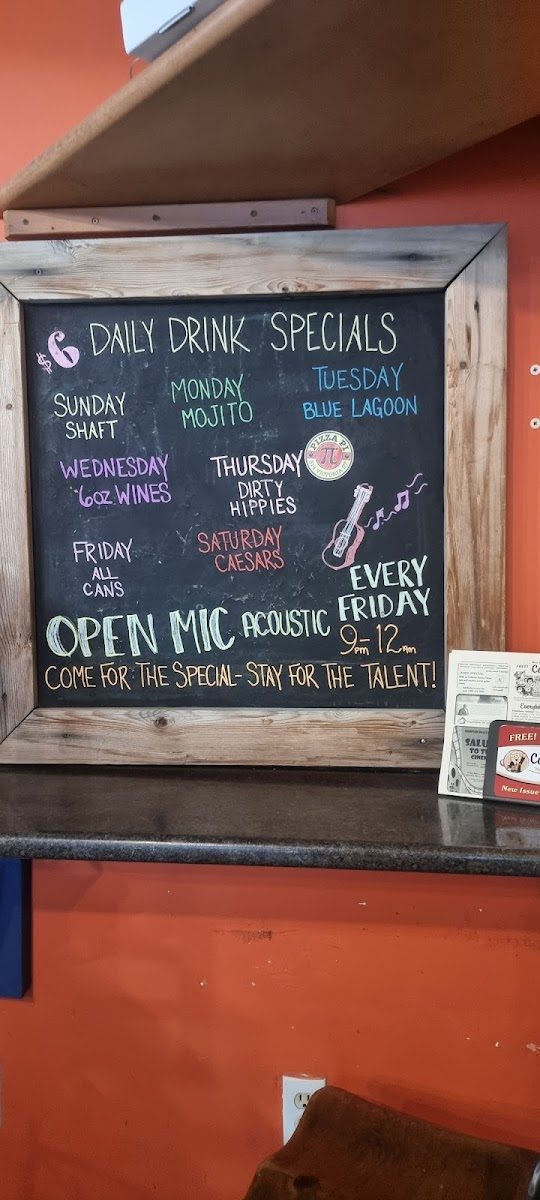 $6 DAILY DRINK SPECIALS
SUNDAY
SHAFT
MONDAY
MOJITO
TUESDAY
BLUE LAGOON
WEDNESDAY
6oz WINES
THURSDAY
DIRTY
HIPPIES
PIZZA PI
π
FRIDAY
ALL
CANS
SATURDAY
CAESARS
OPEN MIC ACOUSTIC
EVERY
FRIDAY
9pm-12am
COME FOR THE SPECIAL - STAY FOR THE TALENT!
FREE!
SALU
TO T
CINE
FREE!
New Issue